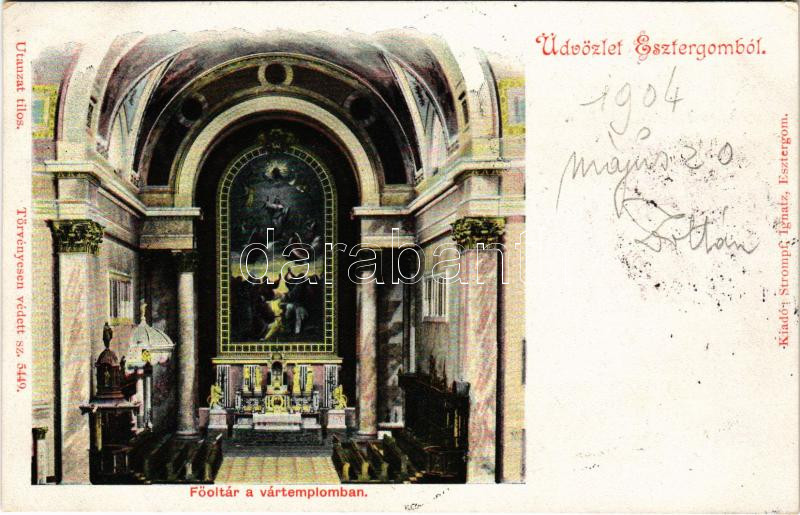 Üdvözlet Esztergomból.
1904
május 20
Zoltán
Utanzat tilos. Törvényesen védett sz. 5449.
Kiadó: Strompf Ignatz, Esztergom.
darabanth
Föoltár a vártemplomban.